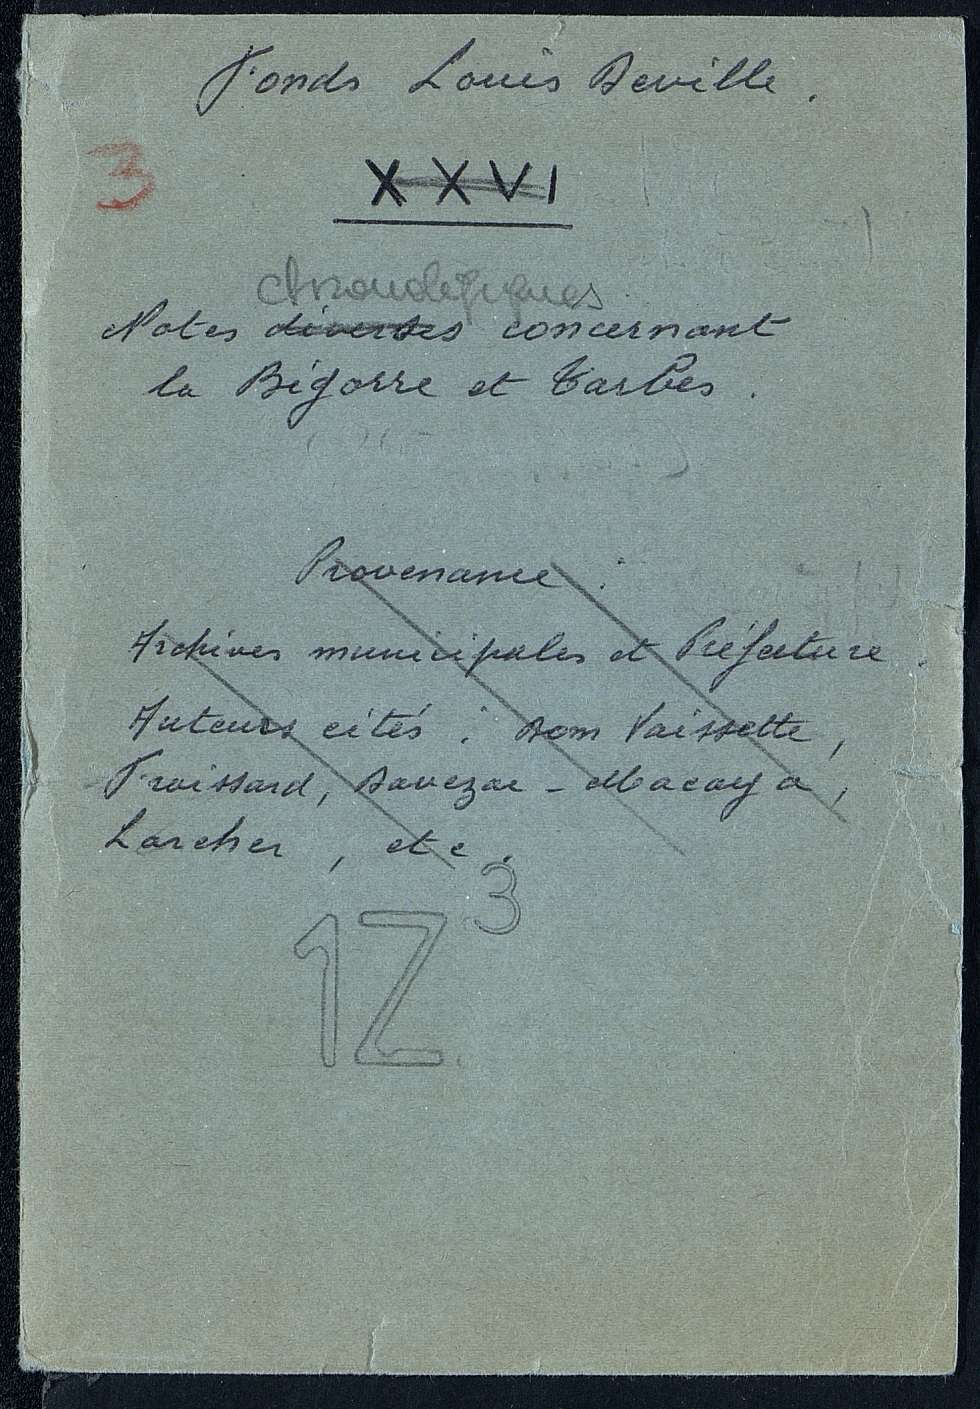 Fonds Louis Deville.
3
XXVI
chronologiques
Notes diverses concernant
la Bigorre et Tarbes.
Provenance :
Archives municipales et Préfecture.
Auteurs cités : Dom Vaissette,
Froissard, Davezac-Macaya,
Larcher, etc.
1Z3